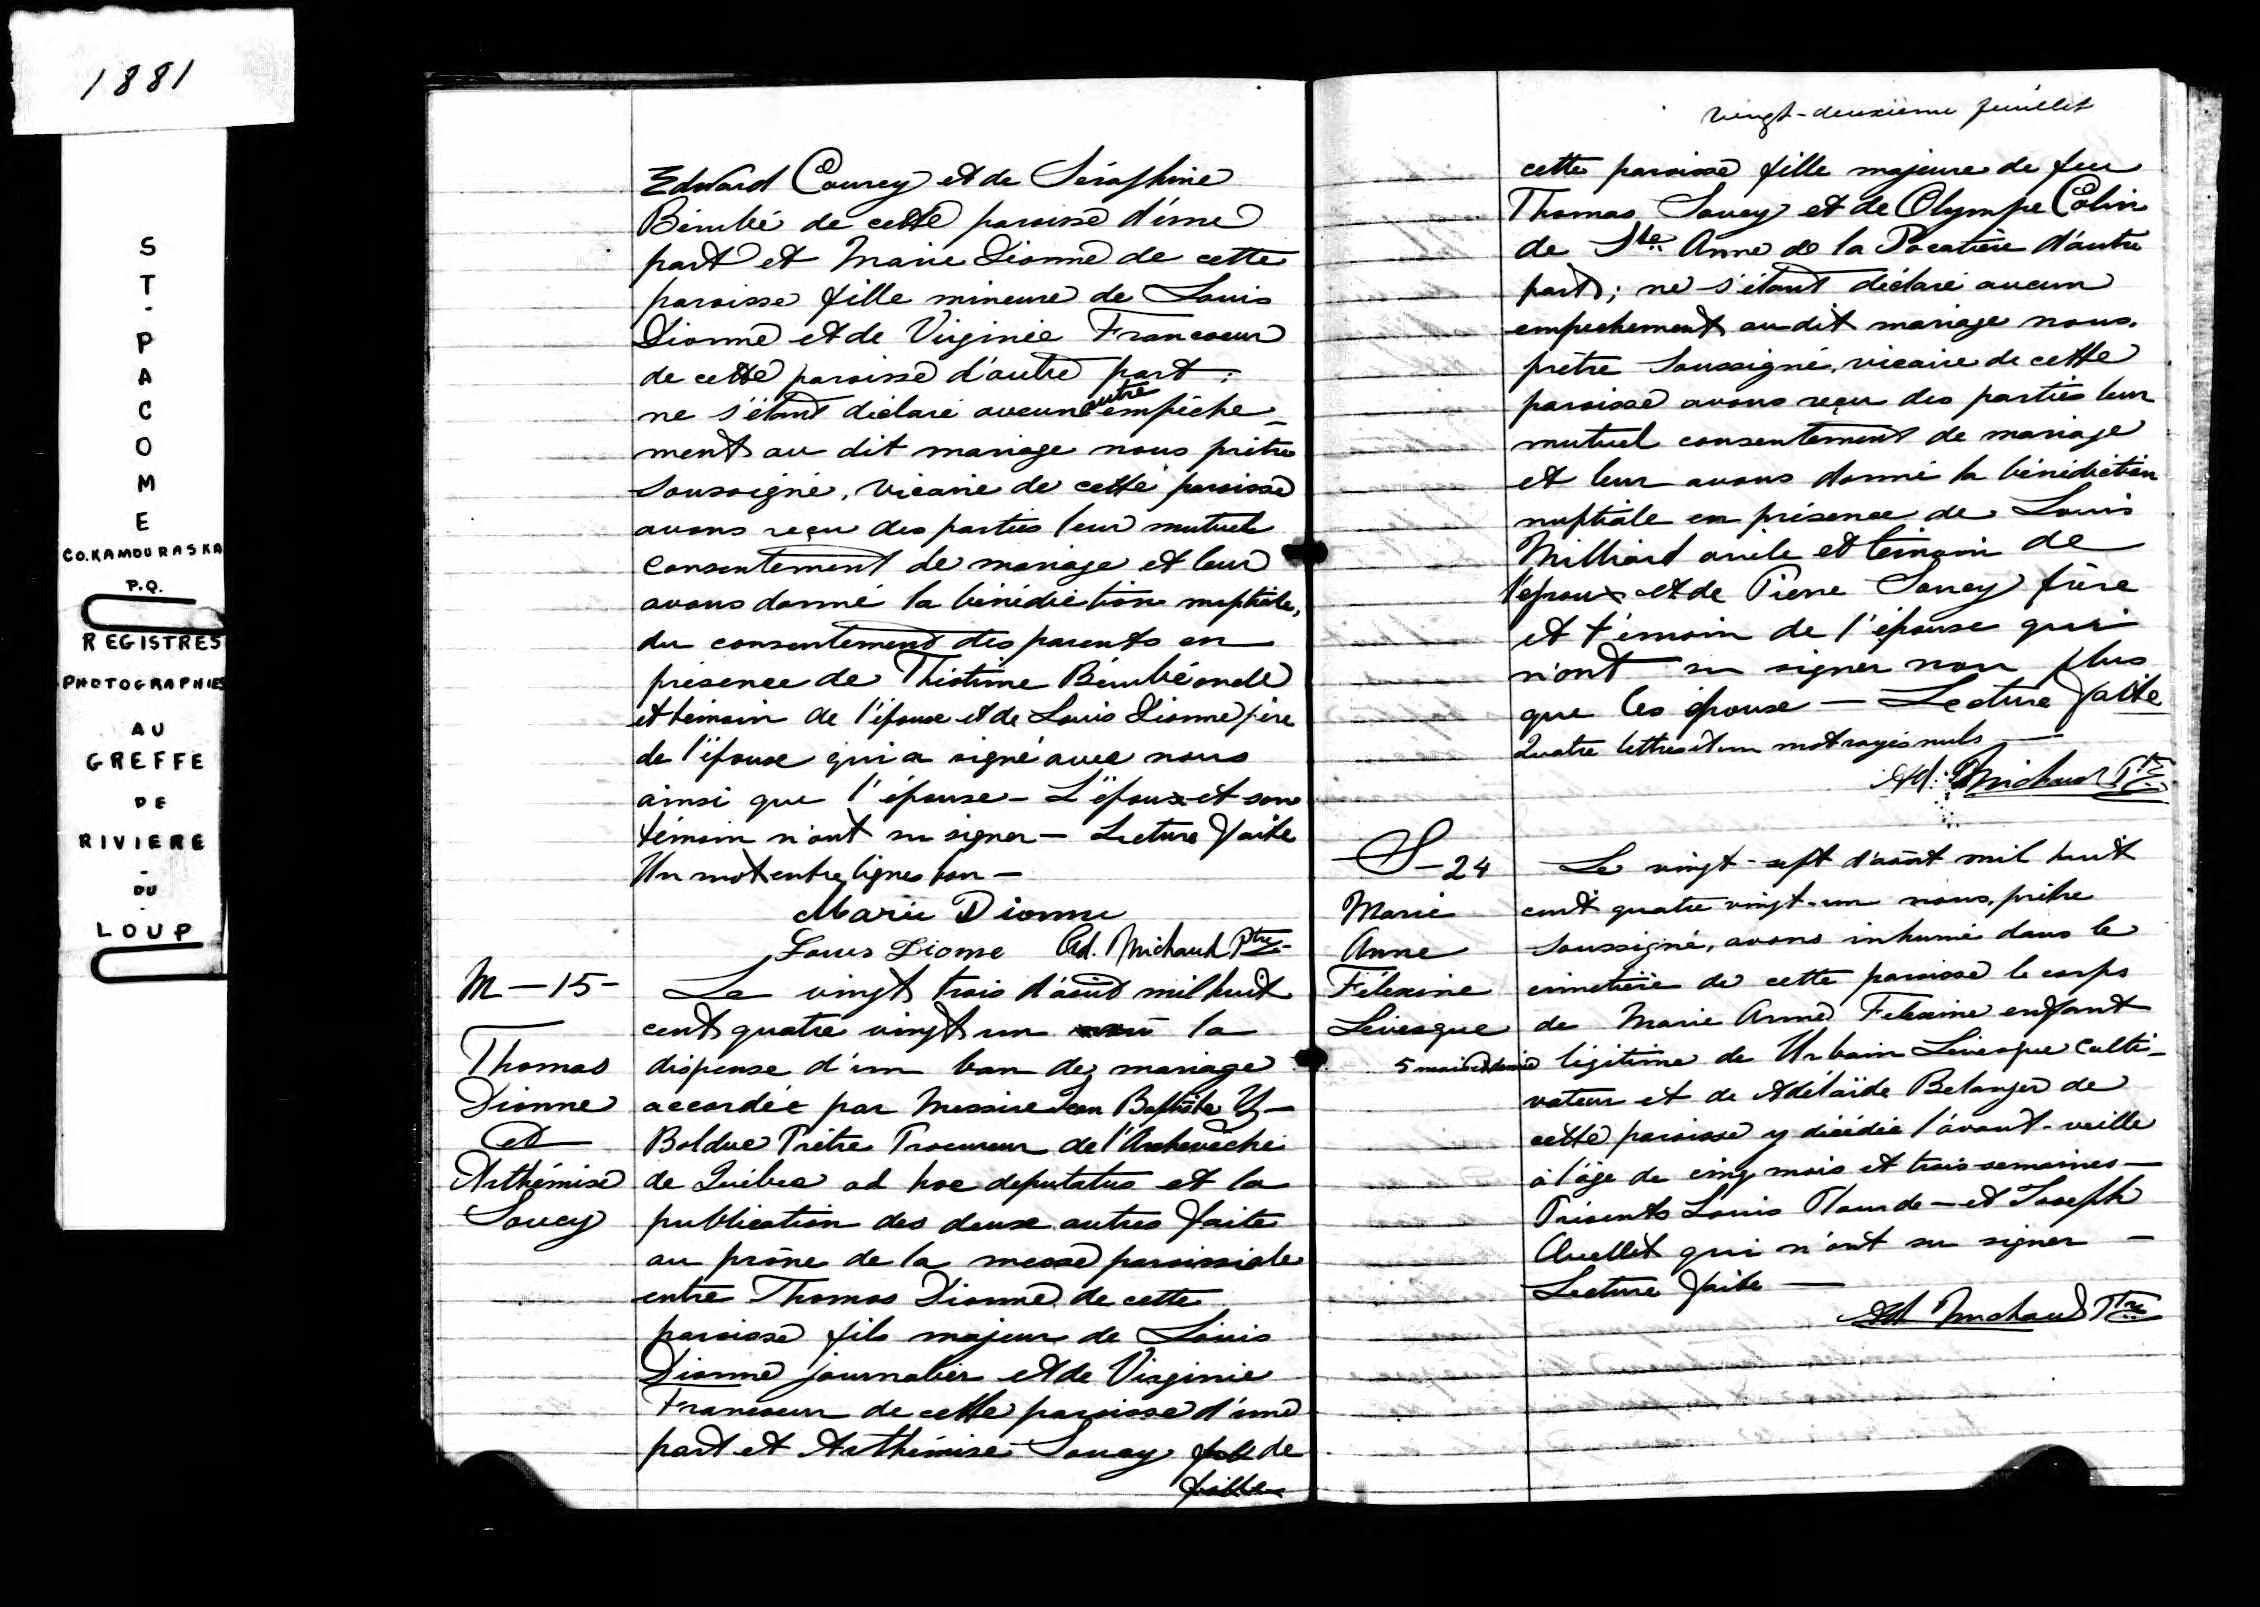 1881
S
T
-
P
A
C
O
M
E
CO. KAMOURASKA
P.Q.
REGISTRES
PHOTOGRAPHIES
AU
GREFFE
DE
RIVIERE
-
DU
-
LOUP
Edward Courcy et de Séraphine
Bérubé de cette paroisse d'une
part et Marie Dionne de cette
paroisse fille mineure de Louis
Dionne et de Virginie Francoeur
de cette paroisse d'autre part :
ne s'étant déclaré aucun autre empêche-
ment au dit mariage nous prêtre
soussigné, vicaire de cette paroisse
avons reçu des parties leur mutuel
consentement de mariage et leur
avons donné la bénédiction nuptiale,
du consentement des parents en
présence de Thiotime Bérubé oncle
et témoin de l'époux et de Louis Dionne père
de l'épouse qui a signé avec nous
ainsi que l'épouse - L'époux et son
témoin n'ont su signer - Lecture faite
Un mot entre lignes bon -
Marie Dionne
Louis Dione Ad. Michaud Ptre
M - 15 -
Thomas
Dionne
et
Arthémise
Soucy
Le vingt trois d'août mil huit
cent quatre vingt un la
dispense d'un ban de mariage
accordée par Messire Jean Baptiste Z
Bolduc Prêtre Procureur de l'Archevêché
de Québec ad hoc deputatus et la
publication des deux autres faite
au prône de la messe paroissiale
entre Thomas Dionne de cette
paroisse fils majeur de Louis
Dionne journalier et de Virginie
Francoeur de cette paroisse d'une
part et Arthémise Soucy fill de
fille
vingt-deuxième feuillet
cette paroisse fille majeure de feu
Thomas Soucy et de Olympe Colin
de Ste Anne de la Pocatière d'autre
part ; ne s'étant déclaré aucun
empechement au dit mariage nous.
prêtre soussigné, vicaire de cette
paroisse avons reçu des parties leur
mutuel consentement de mariage
et leur avons donné la bénédiction
nuptiale en présence de Louis
Milliard oncle et témoin de
l'époux et de Pierre Soucy frère
et témoin de l'épouse qui
n'ont su signer non plus
que les épouse - Lecture faite
Quatre lettres et un mot rayés nuls -
Ad. Michaud Ptre
S - 24
Marie
Anne
Félexine
Lévesque
5 mois et demie
Le vingt-sept d'août mil huit
cent quatre vingt-un nous, prêtre
soussigné, avons inhumé dans le
cimetière de cette paroisse le corps
de Marie Anne Felexine enfant
légitime de Urbain Lévesque culti-
vateur et de Adélaïde Belanger de
cette paroisse y décédée l'avant-veille
à l'âge de cinq mois et trois semaines -
Présents Louis Plourde - et Joseph
Ouellet qui n'ont su signer -
Lecture faite -
Ad Michaud Ptre